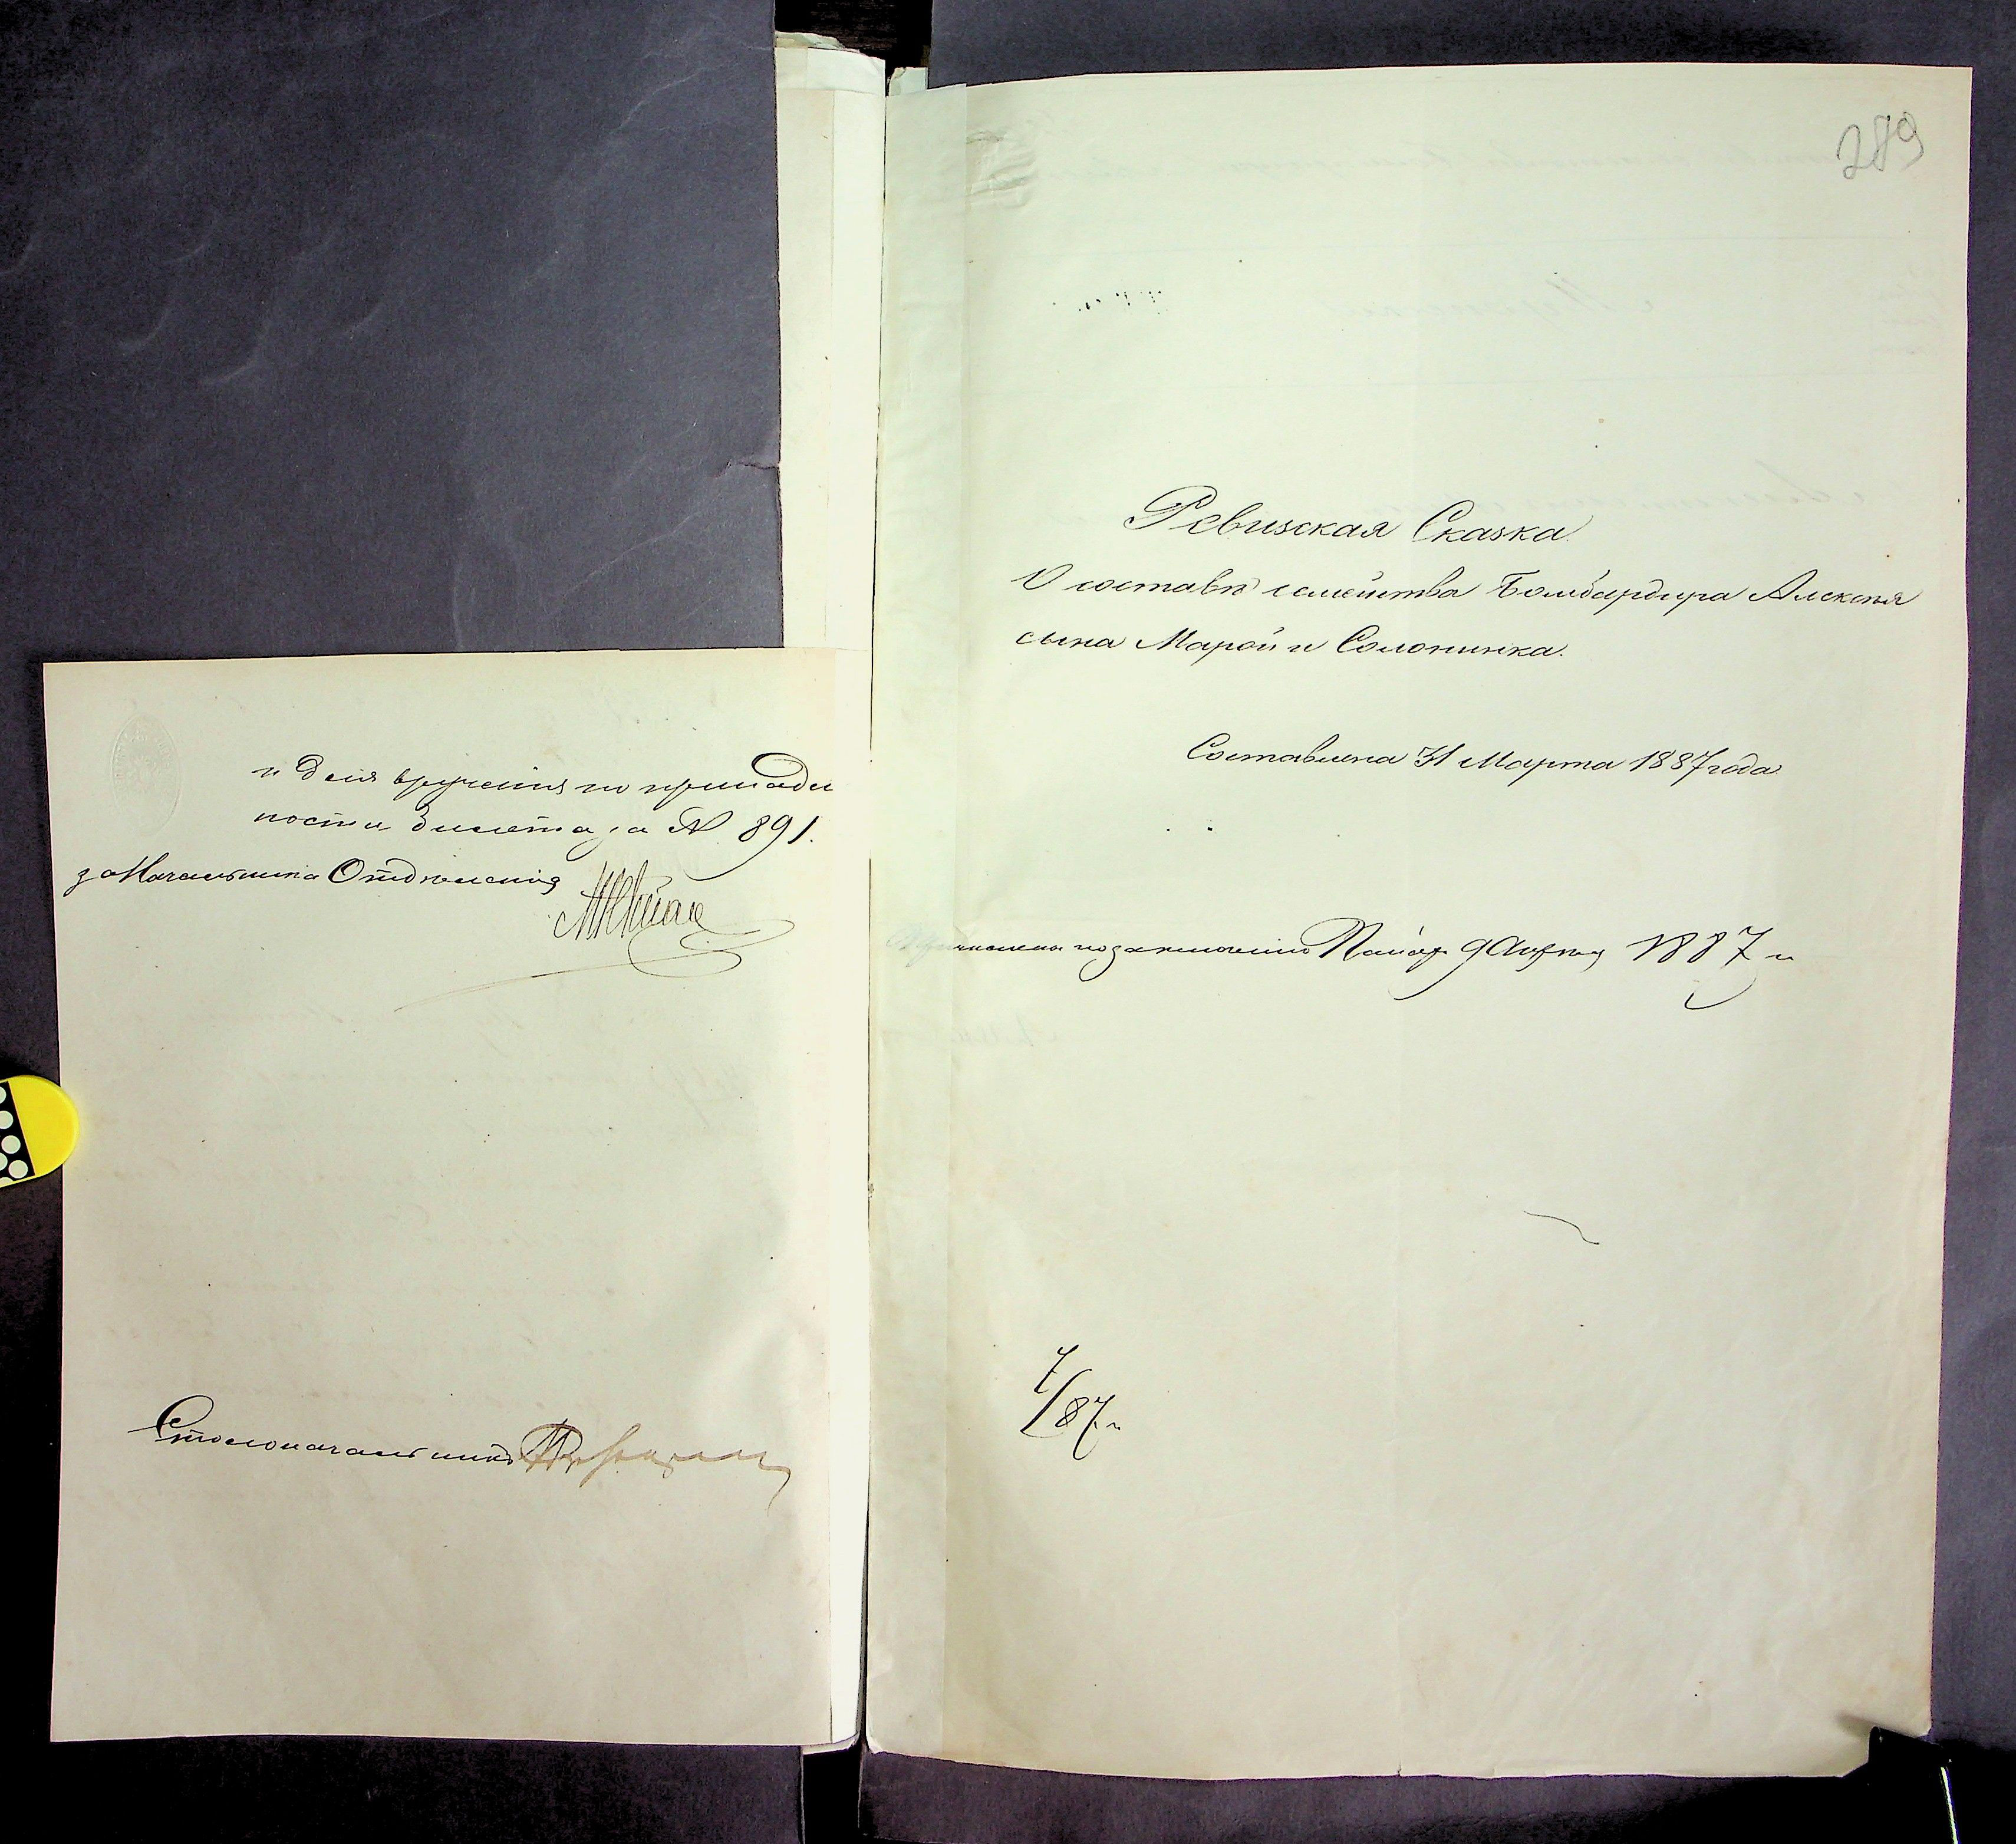 и для вручения по принадл
ности билета за № 891.
за Начальника Отделения
Столоначальникъ
289
Ревизская Сказка.
О составѣ семейства Бомбардира Алексѣя
сына Марои и Солонинка.
Составлена 31 Марта 1887 года
по заключенію 9 1887 г
7/87 г